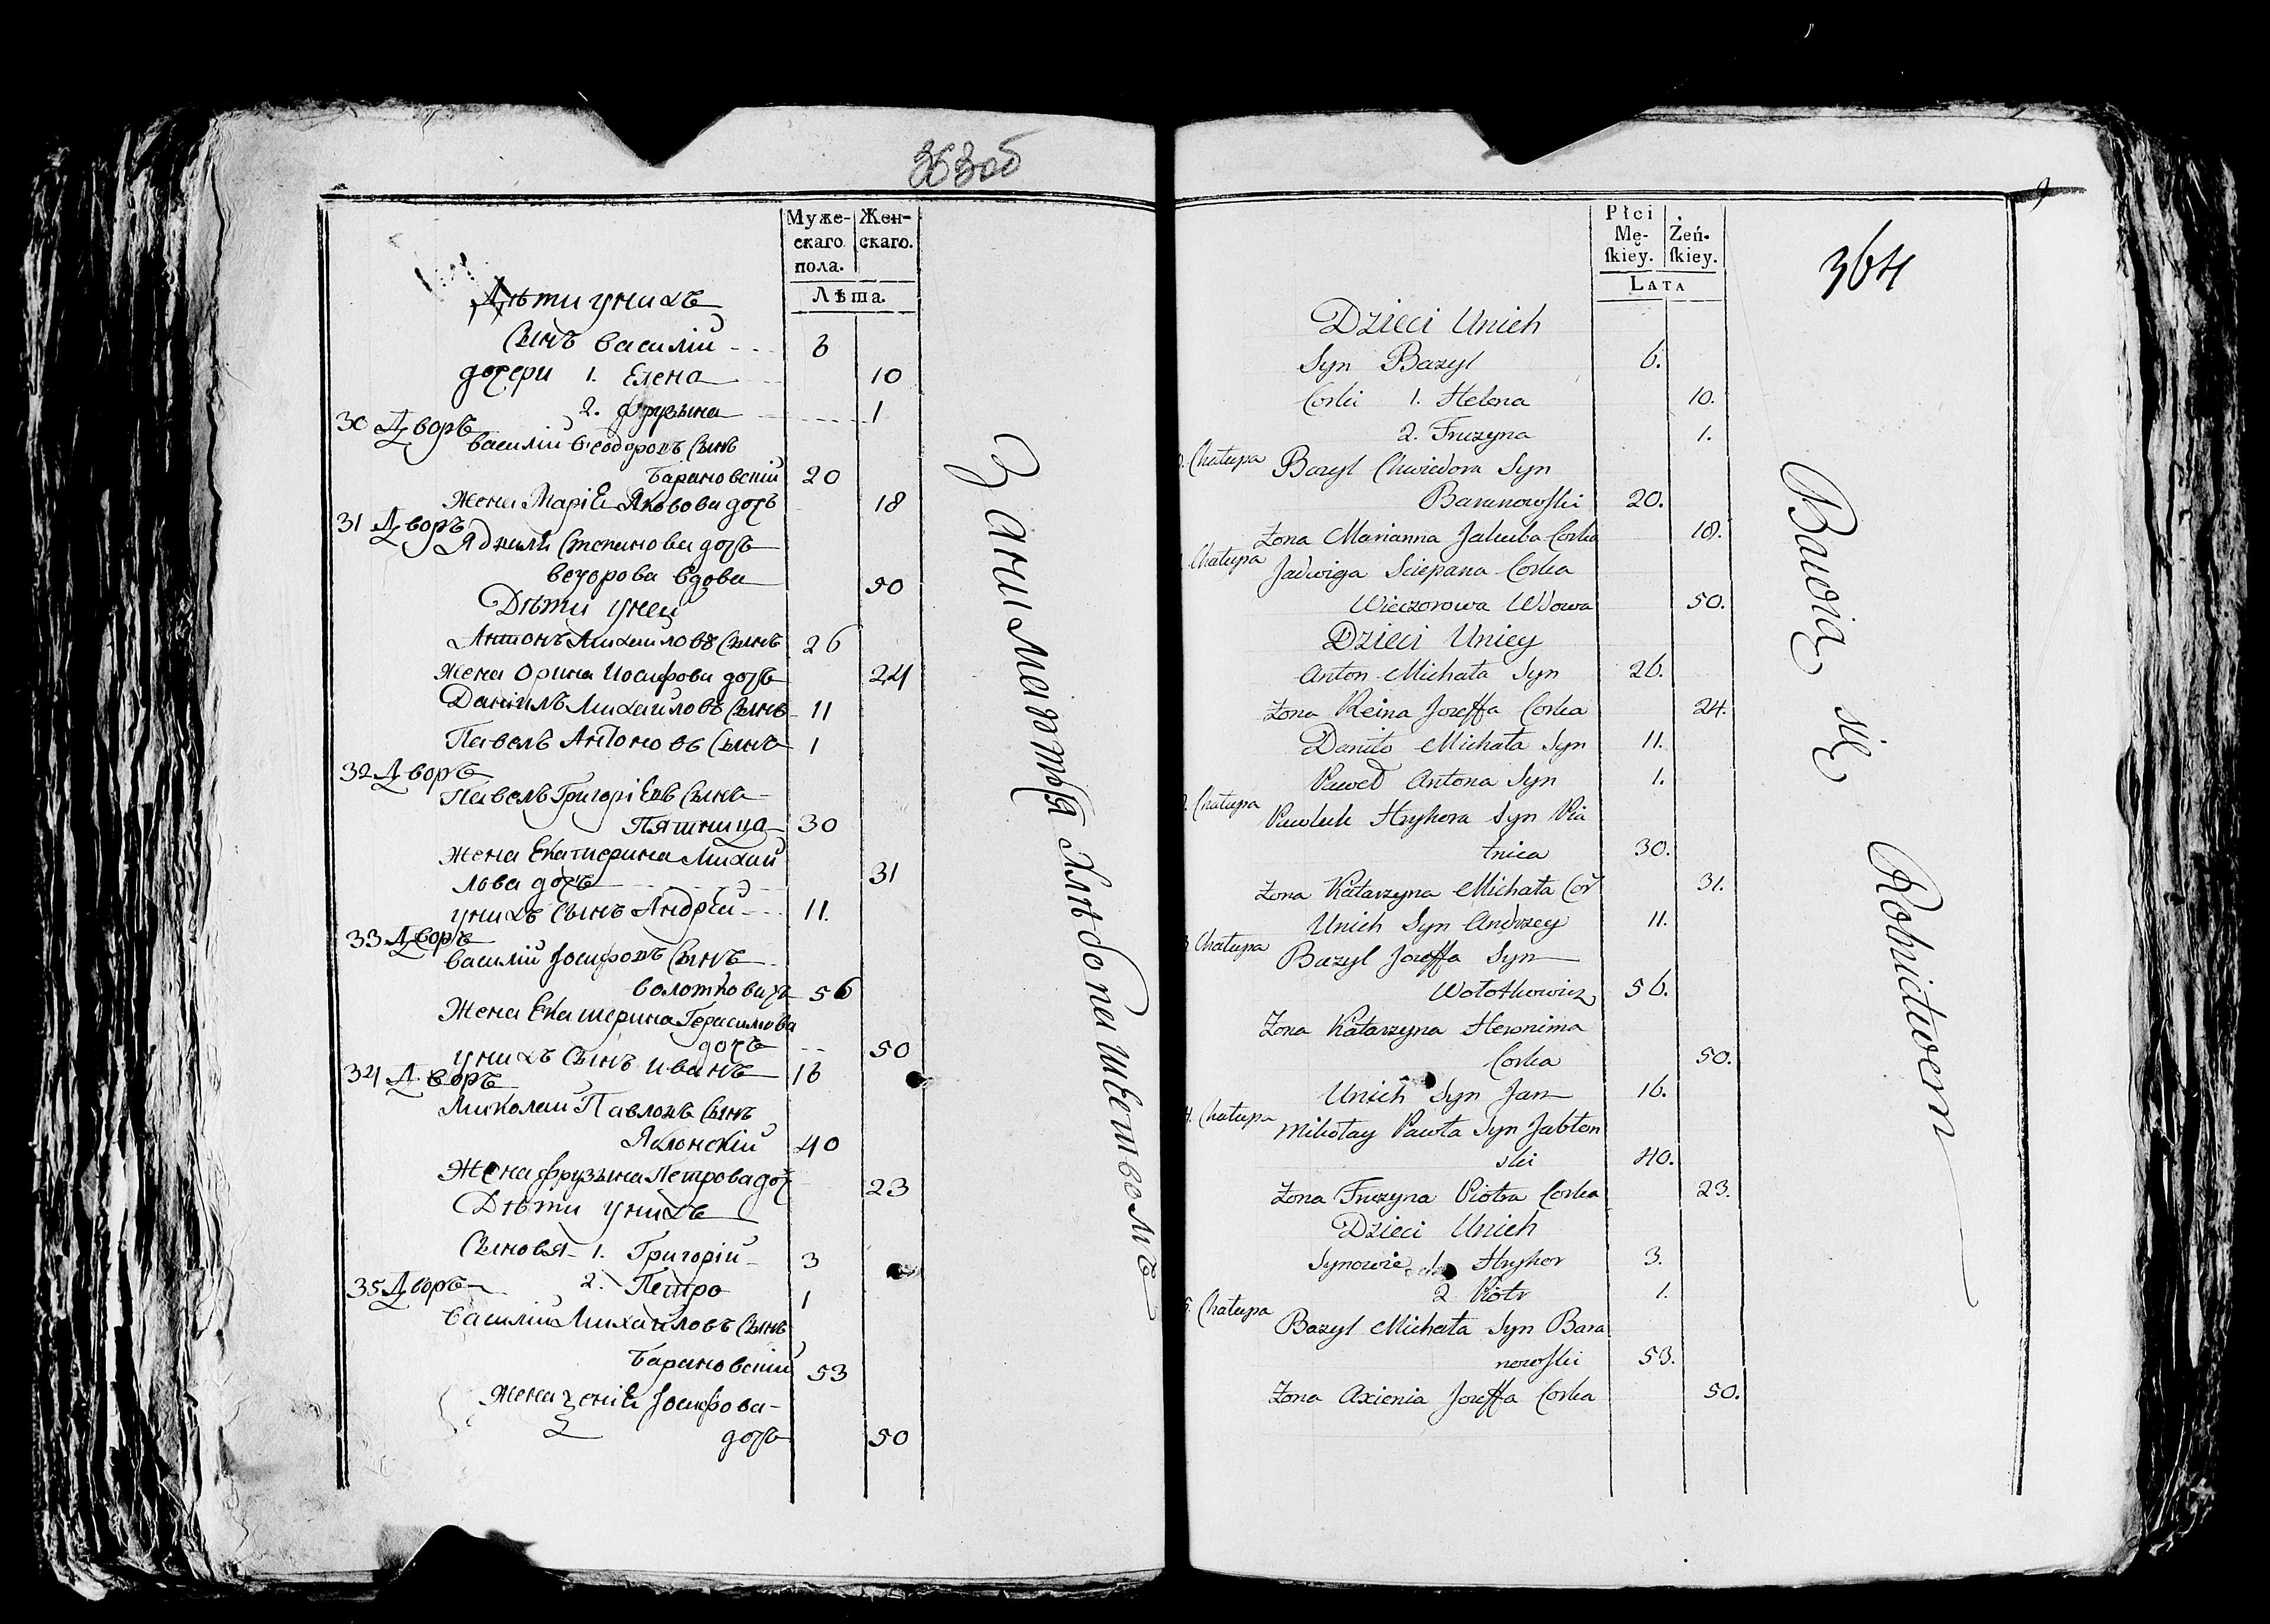 363об
Муже-
скаго
пола.
Жен-
скаго.
Лѣта.
Дѣти унихъ
Сынъ василій 6
дочери 1. Елена 10
2. фрузына 1
30 Дворъ
василій Ѳеодоровъ Сынъ
Барановскій 20
Жена Маріѣ Яковова дочь 18
31 Дворъ
Степанова дочь
вечорова вдова 50
Дѣти уней
Антонъ Михайловъ Сынъ 26
Жена Орина Иосифова дочь 24
Данійлъ Михайловъ Сынъ 11
Павелъ Антоновъ Сынъ 1
32 Дворъ
Павелъ Григоріевъ Сынъ
Пятница 30
Жена Екатерина Михай
лова дочь 31
унихъ Сынъ Андрей 11.
33 Дворъ
василій Јосифовъ Сынъ
волотковичъ 56
Жена Екатерина Герасимова
дочь 50
унихъ Сынъ иванъ 16
34 Дворъ
Миколай Павловъ Сынъ
Яблонскій 40
Жена фрузына Петрова доч 23
Дѣти унихъ
Сыновя 1. Григорій 3
2. Петро 1
35 Дворъ
василій Михайловъ Сынъ
Барановскій 53
Жена Јосифова
дочь 50
Занимаютъся хлѣбопашетвомъ
364
Płci
Mę-
ſkiey.
Żeń-
ſkiey.
LATA
Dzieci Unich
Syn Bazyl 6.
Corki 1. Helena 10.
2. Fruzyna 1.
Chałupa Bazyl Chwiedora Syn
Baranowſki 20.
Zona Marianna Jakuba Corka 18.
Chałupa Jadwiga Sciepana Corka
Wieczorowa Wdowa 50.
Dzieci Uniey
Anton Michała Syn 26.
Zona Reina Jozeffa Corka 24.
Daniło Michała Syn 11.
Paweł Antona Syn 1.
Chałupa Pawluk Hryhora Syn Pia
tnica 30.
Zona Katarzyna Michała Cor 31.
Unich Syn Andrzey 11.
Chałupa Bazyl Jozeffa Syn
Wołotkowicz 56.
Zona Katarzyna Heronima
Corka 50.
Unich Syn Jan 16.
Chałupa Mikołay Pawła Syn Jabłon
ski 40.
Zona Fruzyna Piotra Corka 23.
Dzieci Unich
Synowie 1. Hryhor 3.
2 Piotr 1.
Chałupa Bazyl Michała Syn Bara
nowſki 53.
Zona Axienia Jozeffa Corka 50.
Bawią się Rolnictwem